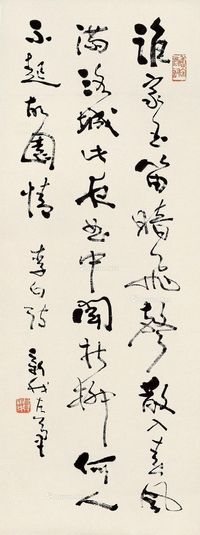 谁家玉笛暗飞声散入春风
满洛城此夜曲中闻折柳何人
不起故园情 李白诗
新我左笔